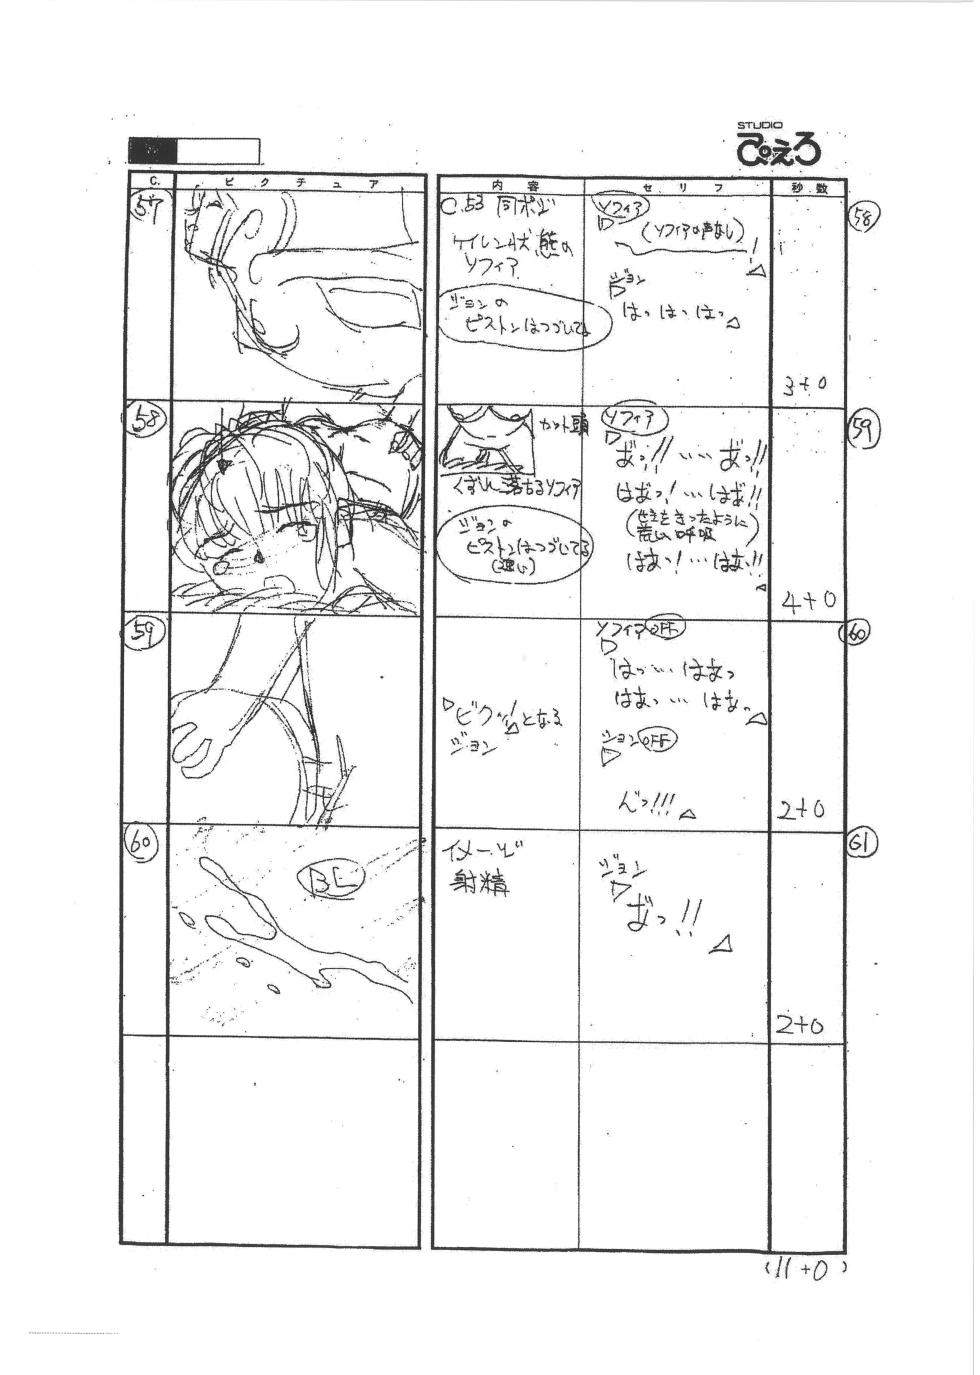 STUDIO
ぴえろ
C.
ピクチュア
内容
セリフ
秒数
57
C.53 同ポジ
ケイレン状態の
ソフィア
ジョンの
ピストンはつづいてる
ソフィア
(ソフィアの声なし)
ジョン
はっ はっ はっ
3+0
58
58
カット頭
くずれ落ちるソフィア
ジョンの
ピストンはつづいてる
(速い)
ソフィア
あ゙っ!! … … あ゙っ!!
はあっ! … はあ!!
(せきをきったように
荒い呼吸)
はあっ! … はあっ!!
4+0
59
59
ビクッ!となる
ジョン
ソフィア OFF
はっ … はあっ
はあっ … はあっ
ジョン OFF
んっ!!!
2+0
60
60
BL
イメージ
射精
ジョン
あ゙っ!!
2+0
61
(11+0)